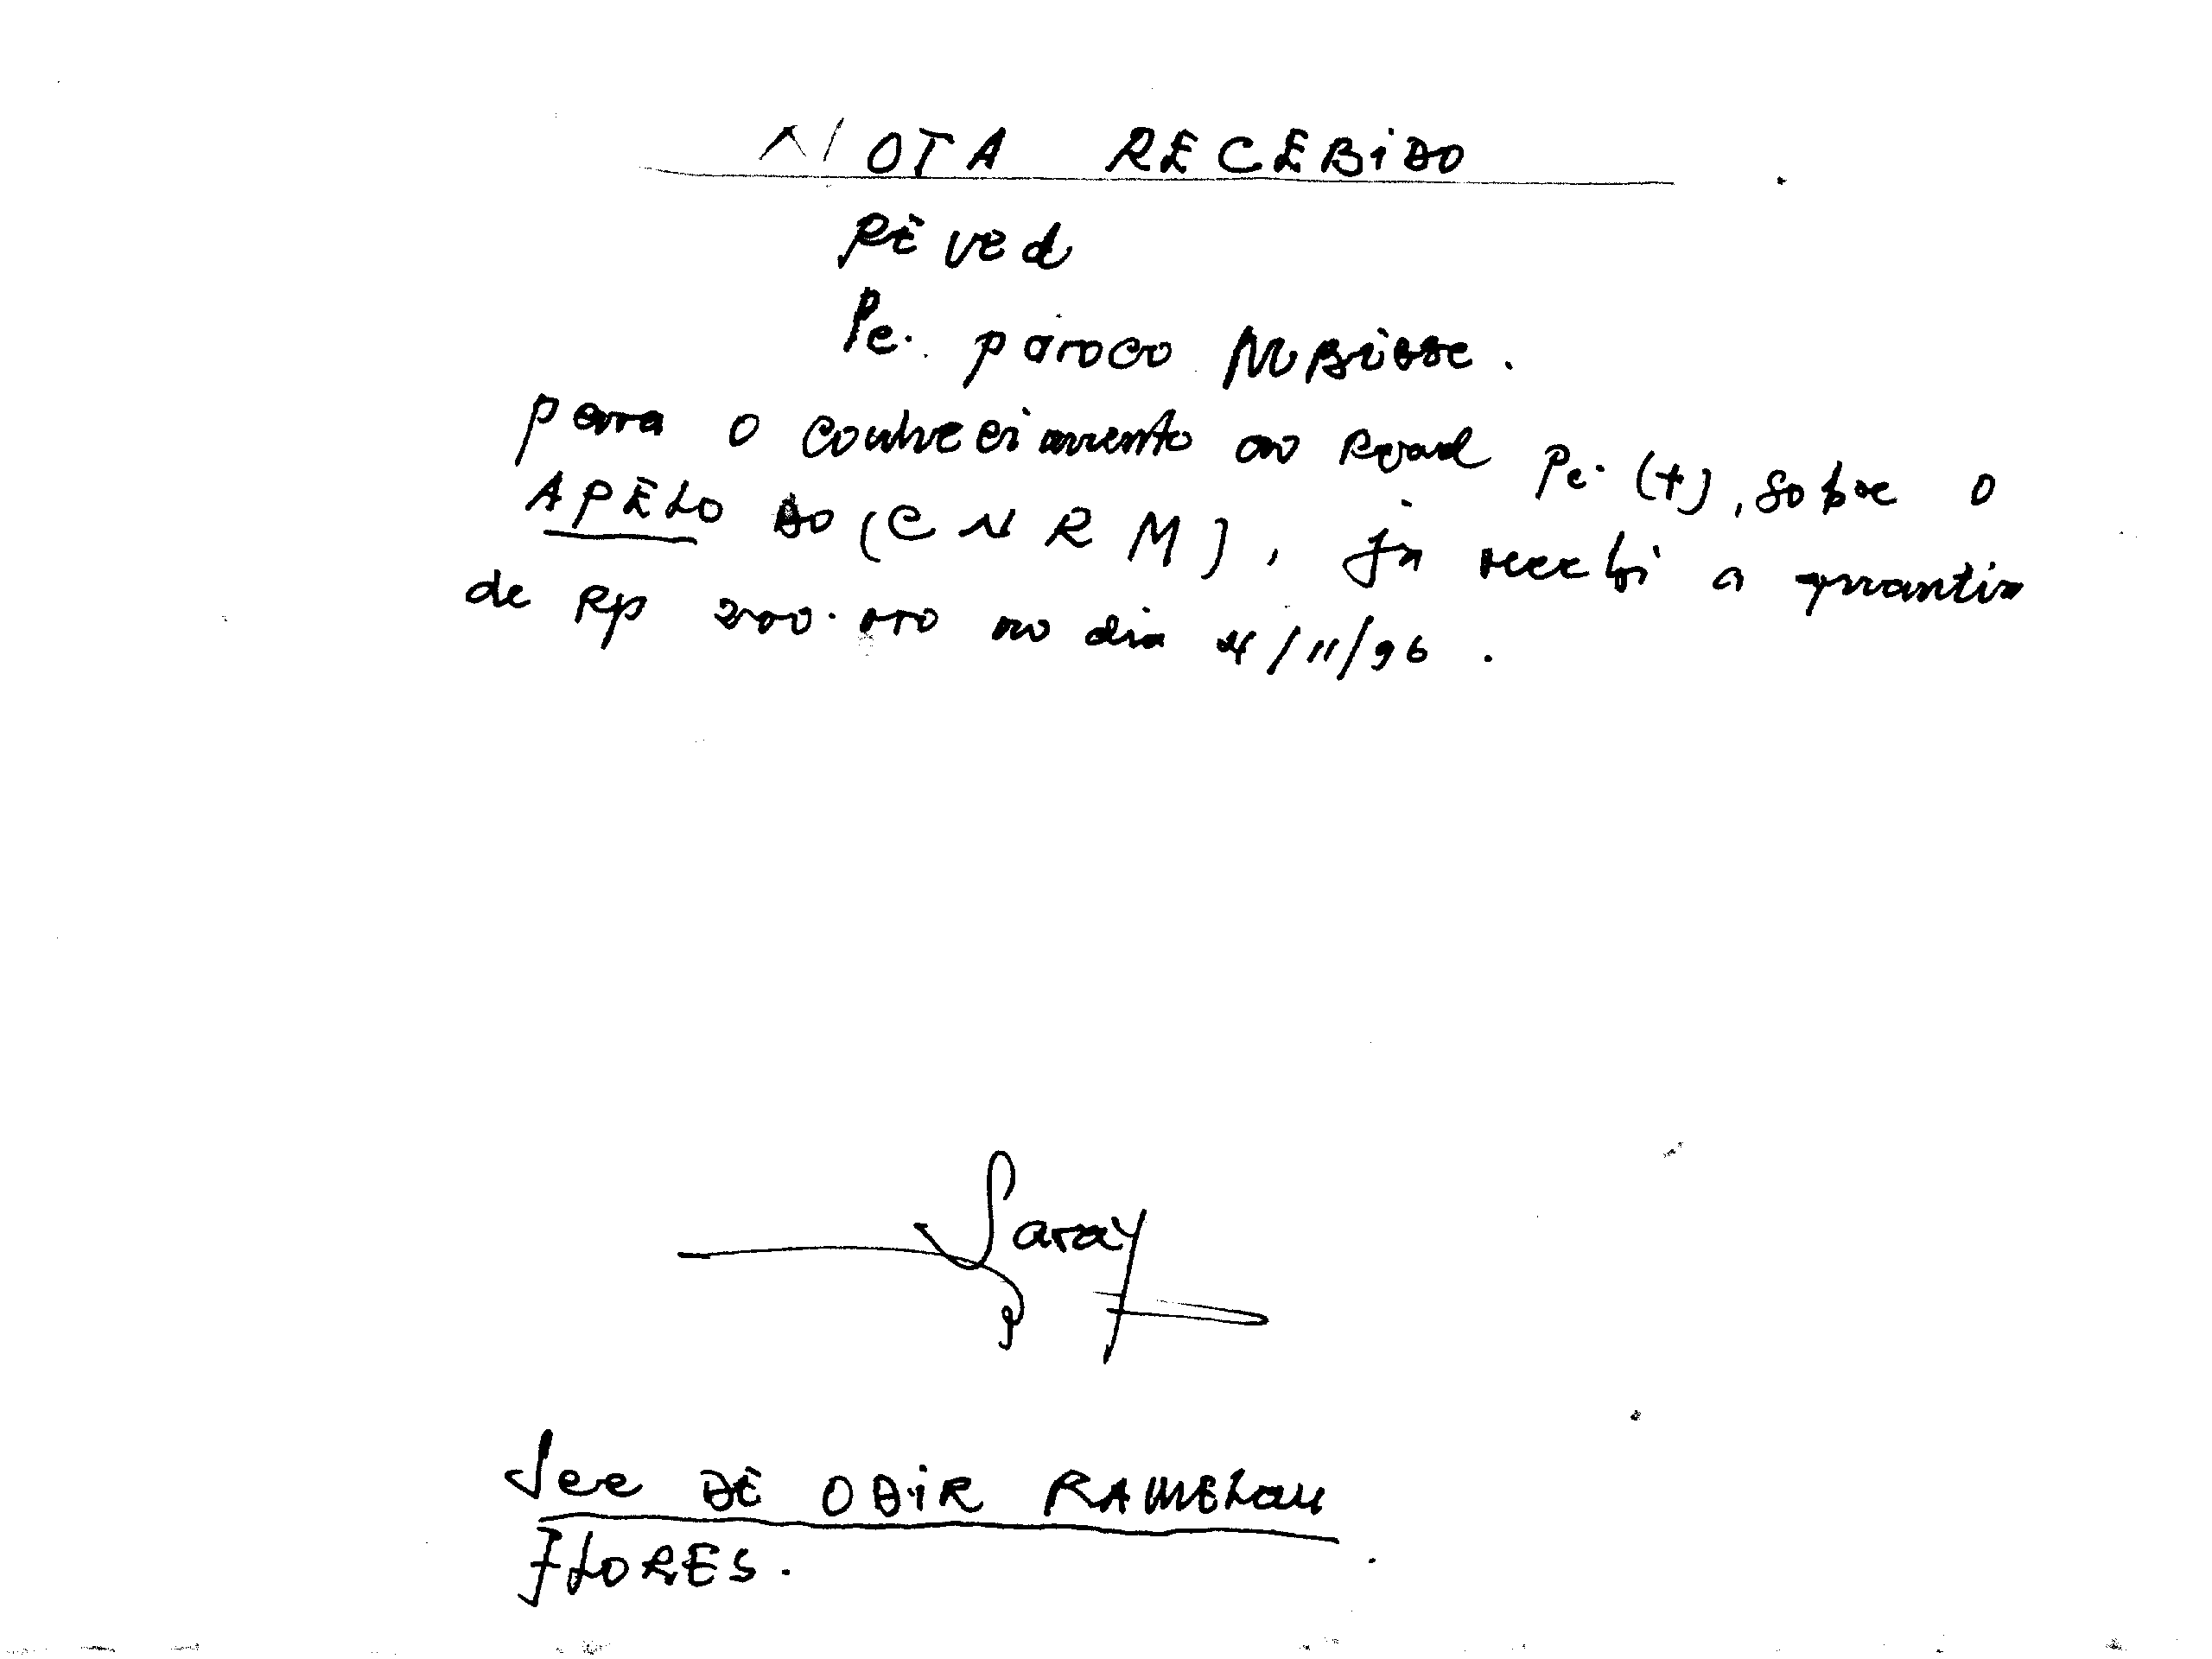 NOTA RECEBiDO
RÊVed
Pe. pároco
para o conhecimento ao Rvad Pe. (+), sobre o
APÊLO DO (C N R M), já recebi a quantia
de Rp 200.000 no dia 4/11/96.
Saray
See DÊ ODiR RAMELau
FLORES.